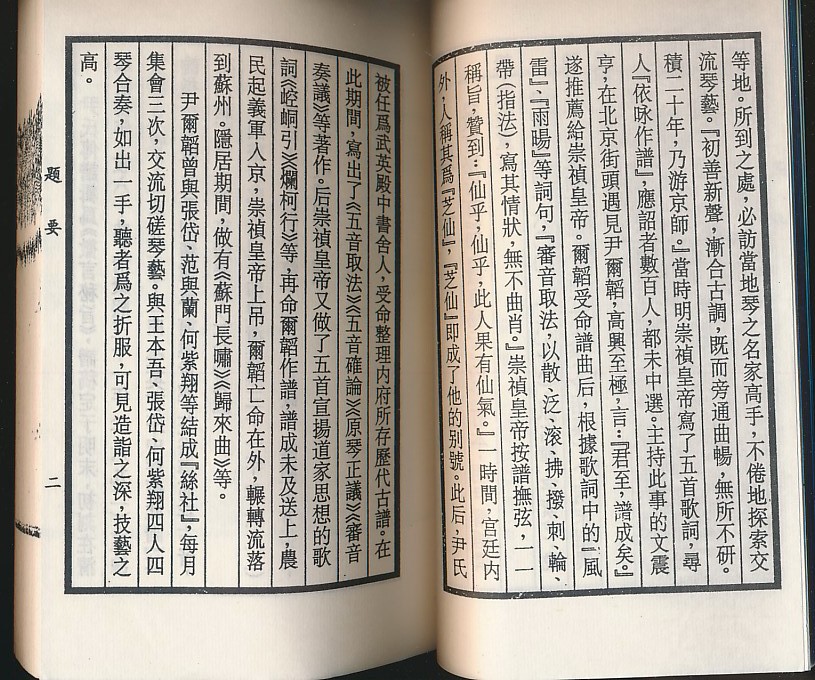 等地。所到之處，必訪當地琴之名家高手，不倦地探索交
流琴藝。『初善新聲，漸合古調，既而旁通曲暢，無所不研。
積二十年，乃游京師。』當時明崇禎皇帝寫了五首歌詞，尋
人『依咏作譜』，應詔者數百人，都未中選。主持此事的文震
亨，在北京街頭遇見尹爾韜，高興至極，言：『君至，譜成矣。』
遂推薦給崇禎皇帝。爾韜受命譜曲后，根據歌詞中的『風
雷』、『雨暘』等詞句，『審音取法，以散、泛、滚、拂、撥、刺、輪、
帶（指法），寫其情狀，無不曲肖。』崇禎皇帝按譜撫弦，一一
稱旨，贊到：『仙乎，仙乎，此人果有仙氣。』一時間，宫廷内
外，人稱其爲『芝仙』，『芝仙』即成了他的别號。此后，尹氏
被任爲武英殿中書舍人，受命整理内府所存歷代古譜。在
此期間，寫出了《五音取法》《五音確論》《原琴正議》《審音
奏議》等著作。后崇禎皇帝又做了五首宣揚道家思想的歌
詞《崆峒引》《爛柯行》等，再命爾韜作譜，譜成未及送上，農
民起義軍入京，崇禎皇帝上吊，爾韜亡命在外，輾轉流落
到蘇州。隱居期間，做有《蘇門長嘯》《歸來曲》等。
尹爾韜曾與張岱、范與蘭、何紫翔等結成『絲社』，每月
集會三次，交流切磋琴藝。與王本吾、張岱、何紫翔四人四
琴合奏，如出一手，聽者爲之折服，可見造詣之深，技藝之
高。
題要
二